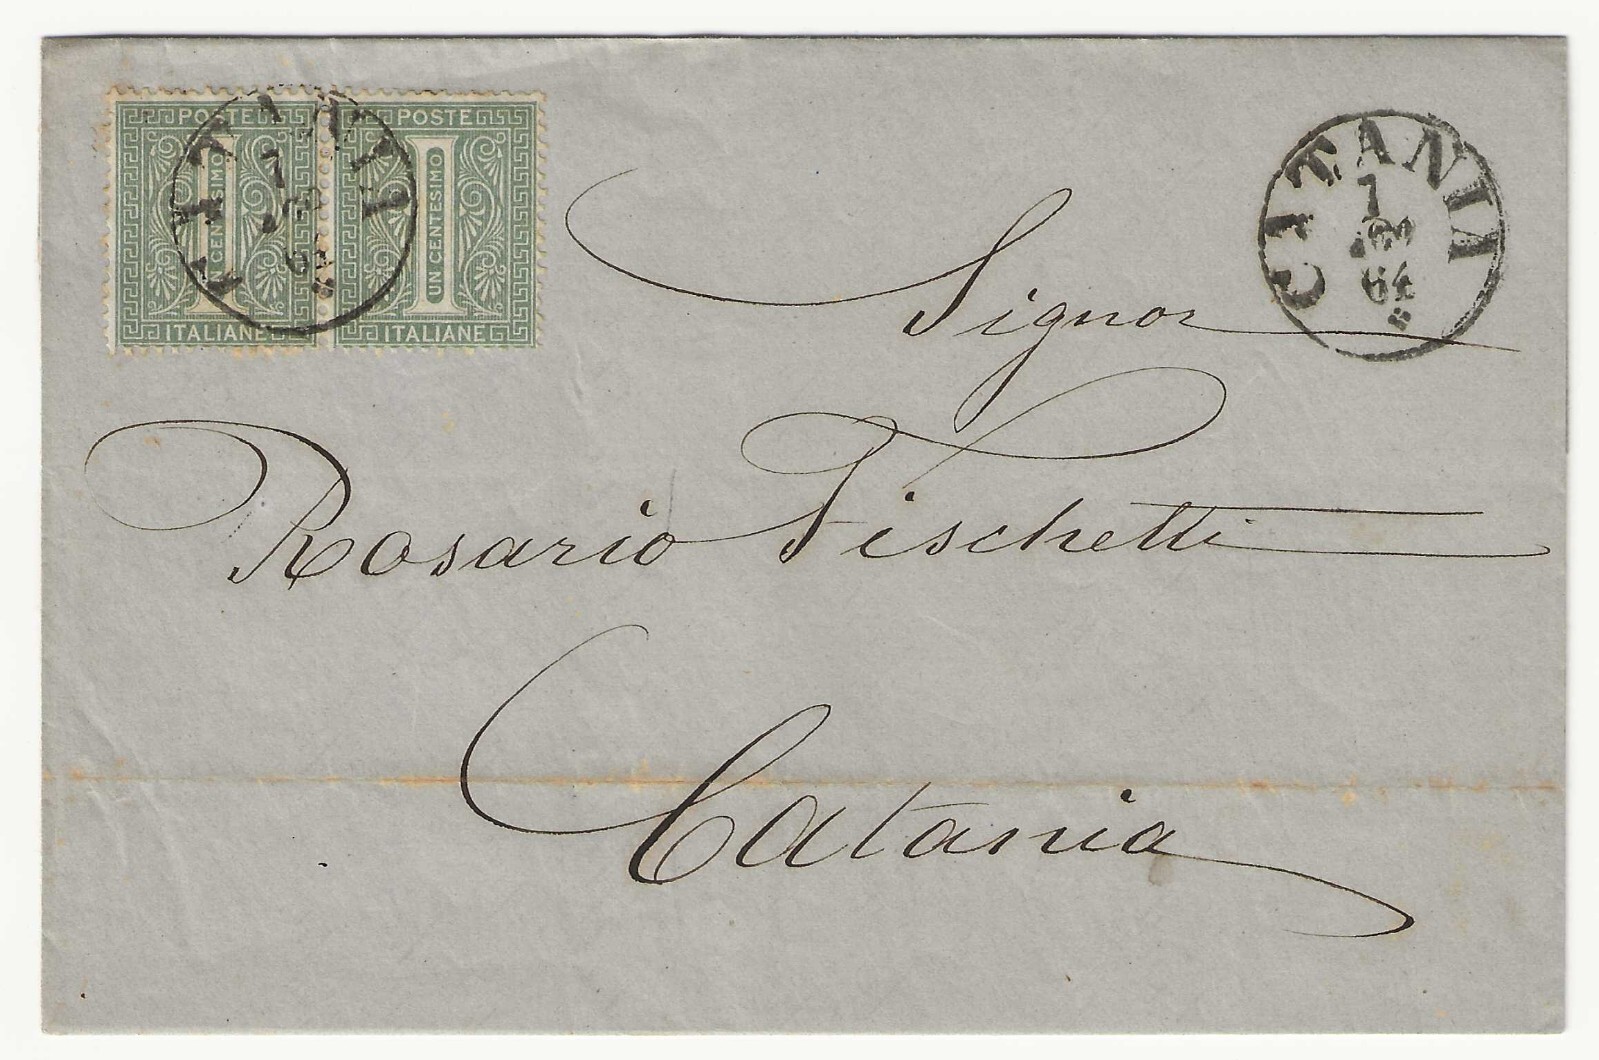 POSTE POSTE
UN CENTESIMO UN CENTESIMO
ITALIANE ITALIANE
CATANIA
7
AGO
64
CATANIA
7
AGO
64
Signor
Rosario Fischetti
Catania